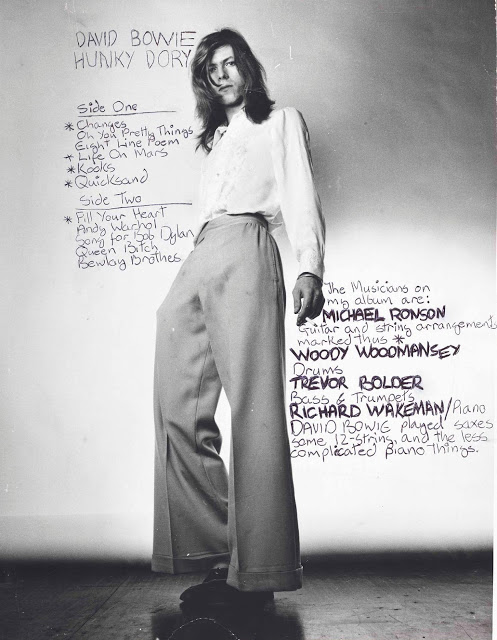 DAVID BOWIE
HUNKY DORY
Side One
* Changes
Oh You Pretty Things
Eight Line Poem
* Life On Mars
* Kooks
* Quicksand
Side Two
* Fill Your Heart
Andy Warhol
Song for Bob Dylan
Queen Bitch
Bewlay Brothers
The Musicians on
my album are:
MICHAEL RONSON
Guitar and string arrangements
marked thus *
WOODY WOODMANSEY
Drums
TREVOR BOLDER
Bass & Trumpets
RICHARD WAKEMAN/Piano
DAVID BOWIE played saxes
some 12-string, and the less
complicated piano things.